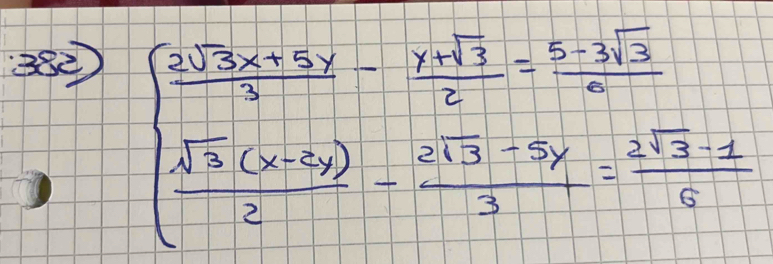 382) { (2√3x + 5y)/3 - (y+√3)/2 = (5-3√3)/6
(√3 (x-2y))/2 - (2√3 - 5y)/3 = (2√3 - 1)/6